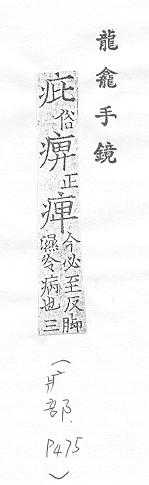 龍龕手鏡
疪俗痹正痺今必至反脚
濕冷病也三
(疒部. P475)